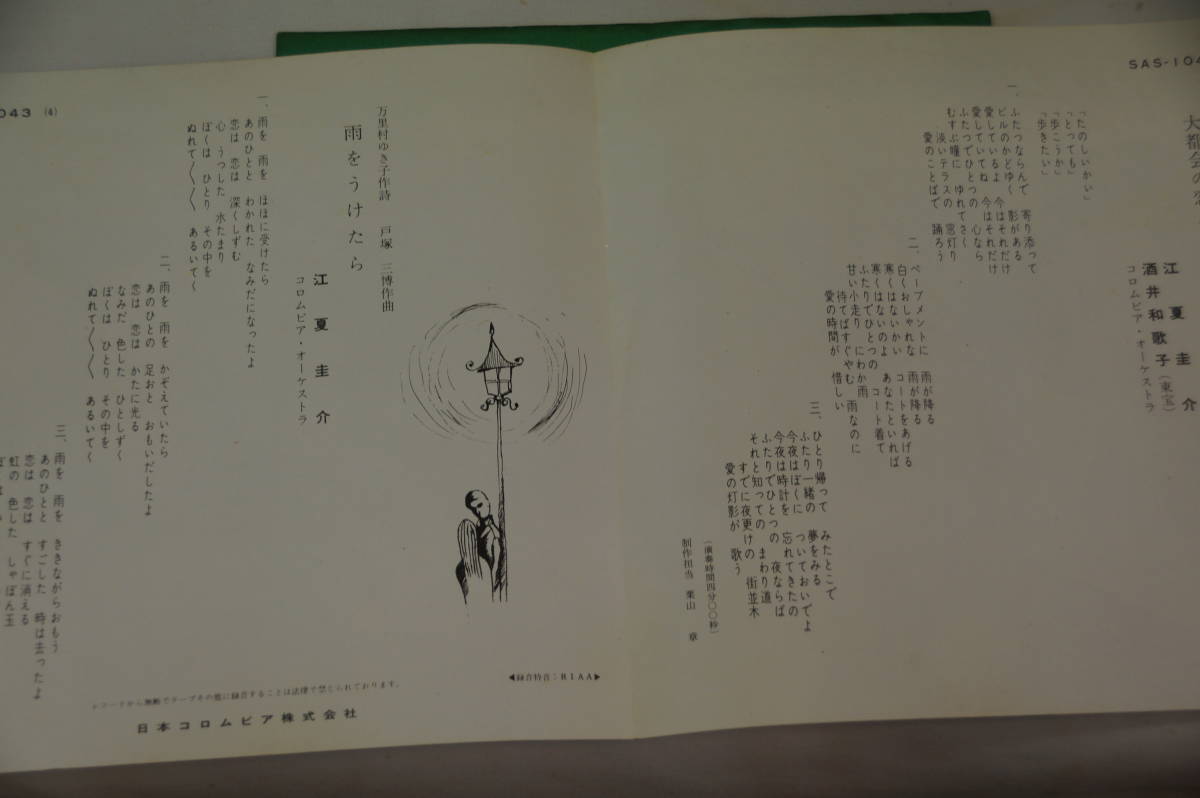 SAS-104
大都会の
江夏圭介
酒井和歌子(東宝)
コロムビア・オーケストラ
「たのしいかい」
「とっても」
「歩こうか」
「歩きたい」
一、
ふたつならんで 寄り添って
ビルのかどゆく 影がある
愛しているよ 今はそれだけ
愛していてね 今はそれだけ
ふたつでひとつの 心なら
むすぶ瞳に ゆれてさく
淡いテラスの 窓灯り
愛のことばで 踊ろう
二、
ペーブメントに 雨が降る
白くおしゃれな 雨が降る
寒くはないかい コートをあげる
寒くはないのよ あなたといれば
ふたりでひとつの コート着て
甘い小走り にわか雨
待てばすぐやむ 雨なのに
愛の時間が 惜しい
三、
ひとり帰って みたとこで
ふたり一緒の 夢をみる
今夜はぼくに ついておいでよ
今夜は時計を 忘れてきたの
ふたりでひとつの 夜ならば
それと知っての まわり道
すでに夜更けの 街並木
愛の灯影が 歌う
(演奏時間四分〇〇秒)
制作担当 栗山 章
043 (4)
万里村ゆき子作詩 戸塚三博作曲
雨をうけたら
江夏圭介
コロムビア・オーケストラ
一、
雨を 雨を ほほに受けたら
あのひとと わかれた なみだになったよ
恋は 恋は 深くしずむ
心 うつした 水たまり
ぼくは ひとり その中を
ぬれて〱〱 あるいてく
二、
雨を 雨を かぞえていたら
あのひとの 足おと おもいだしたよ
恋は 恋は かたに光る
なみだ 色した ひとしずく
ぼくは ひとり その中を
ぬれて〱〱 あるいてく
三、
雨を 雨を ききながらおもう
あのひとと すごした 時は去ったよ
恋は 恋は すぐに消える
虹の 色した しゃぼん玉
◀録音特音：RIAA▶
レコードから無断でテープその他に録音することは法律で禁じられております。
日本コロムビア株式会社